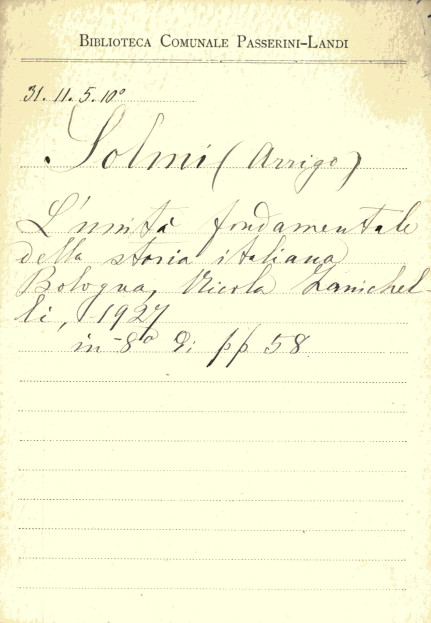 BIBLIOTECA COMUNALE PASSERINI-LANDI
31. 11. 5. 10°
Solmi (Arrigo)
L'unità fondamentale
della storia italiana
Bologna, Nicola Zanichel-
li, 1927
in-8° di pp 58